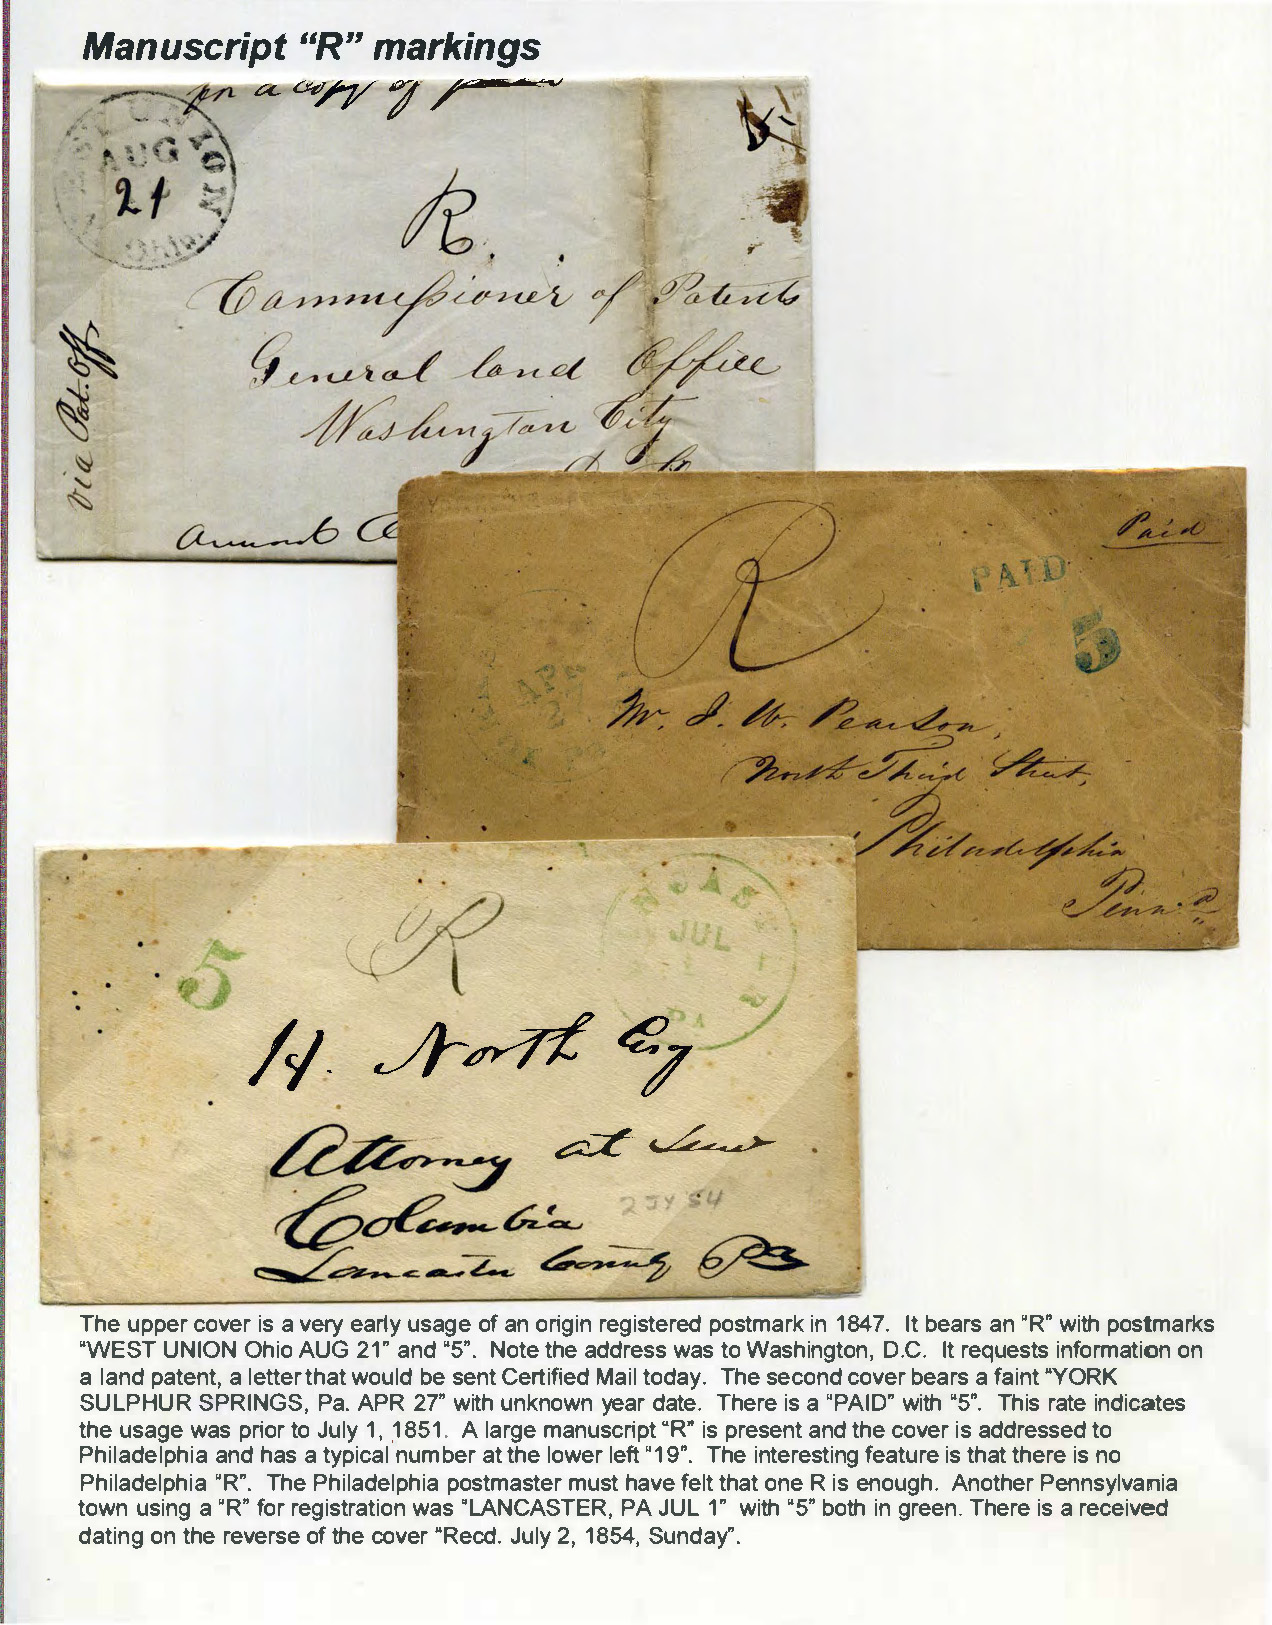 Manuscript “R” markings
for a copy of
WEST UNION
AUG
21
Ohio
R.
Commissioner of Patents
General land Office
Washington City
via Pat. Off
Paid
PAID
5
R
APR
27
Mr. J. W. Pearson,
North Third Street,
Philadelphia
Penna
5
R
LANCASTER
JUL
1
PA
H. North Esq
Attorney at Law
Columbia
2 JY 54
Lancaster County Pa
The upper cover is a very early usage of an origin registered postmark in 1847. It bears an “R” with postmarks
“WEST UNION Ohio AUG 21” and “5”. Note the address was to Washington, D.C. It requests information on
a land patent, a letter that would be sent Certified Mail today. The second cover bears a faint “YORK
SULPHUR SPRINGS, Pa. APR 27” with unknown year date. There is a “PAID” with “5”. This rate indicates
the usage was prior to July 1, 1851. A large manuscript “R” is present and the cover is addressed to
Philadelphia and has a typical number at the lower left “19”. The interesting feature is that there is no
Philadelphia “R”. The Philadelphia postmaster must have felt that one R is enough. Another Pennsylvania
town using a “R” for registration was “LANCASTER, PA JUL 1” with “5” both in green. There is a received
dating on the reverse of the cover “Recd. July 2, 1854, Sunday”.